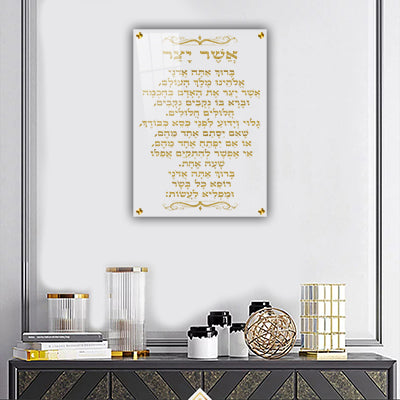 אֲשֶׁר יָצַר
בָּרוּךְ אַתָּה אֲדֹנָי
אֱלֹהֵינוּ מֶלֶךְ הָעוֹלָם,
אֲשֶׁר יָצַר אֶת הָאָדָם בְּחָכְמָה
וּבָרָא בוֹ נְקָבִים נְקָבִים,
חֲלוּלִים חֲלוּלִים.
גָּלוּי וְיָדוּעַ לִפְנֵי כִסֵּא כְבוֹדֶךָ,
שֶׁאִם יִסָּתֵם אֶחָד מֵהֶם,
אוֹ אִם יִפָּתֵחַ אֶחָד מֵהֶם,
אִי אֶפְשַׁר לְהִתְקַיֵּם אֲפִלּוּ
שָׁעָה אֶחָת.
בָּרוּךְ אַתָּה אֲדֹנָי
רוֹפֵא כָל בָּשָׂר
וּמַפְלִיא לַעֲשׂוֹת: